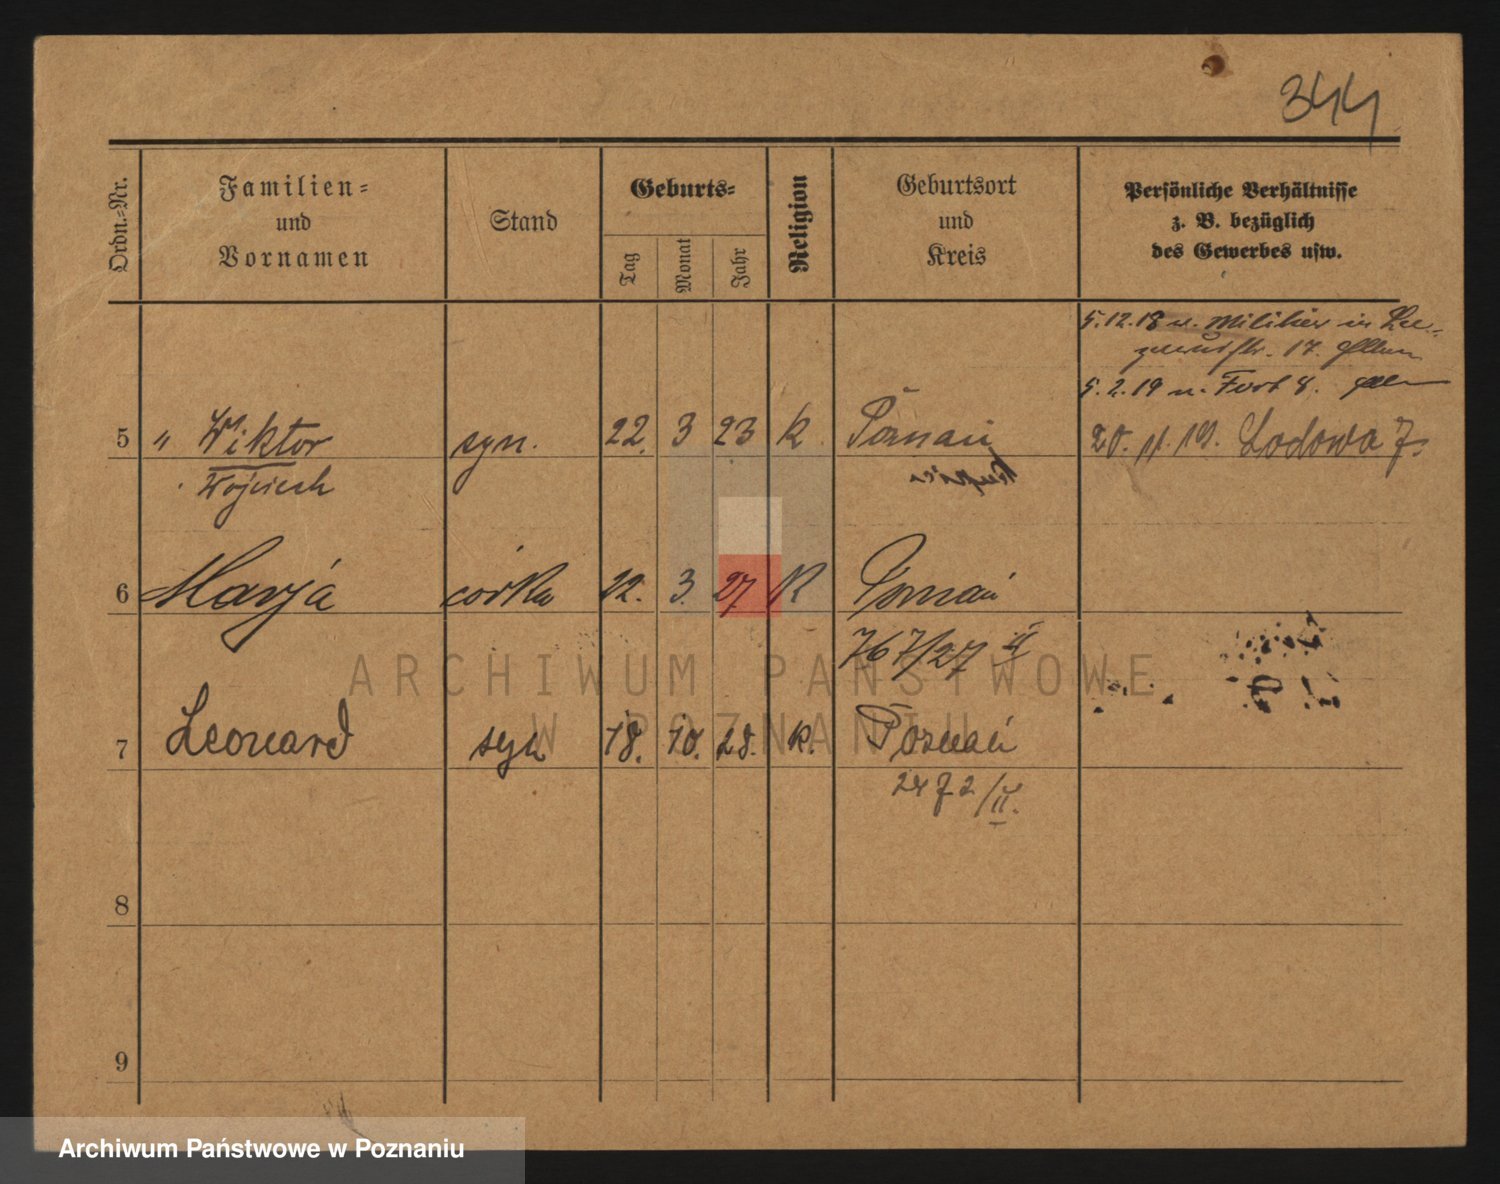 344
Ordn.=Nr.
Familien=
und
Vornamen
Stand
Geburts=
Tag
Monat
Jahr
Religion
Geburtsort
und
Kreis
Persönliche Verhältnisse
z. B. bezüglich
des Gewerbes usw.
5.12.18 v. Militär in
17.
5.2.19 n. Fort 8.
5 " Wiktor syn. 22. 3 23 k Poznań 20. 11. 19. Lodowa 7
Wojciech
6 Marja córka 22. 3. 27 K Poznań
767/27 II
ARCHIWUM PAŃSTWOWE
W POZNANIU
7 Leonard syn 18. 10. 28. k. Poznań
2472/II.
8
9
Archiwum Państwowe w Poznaniu